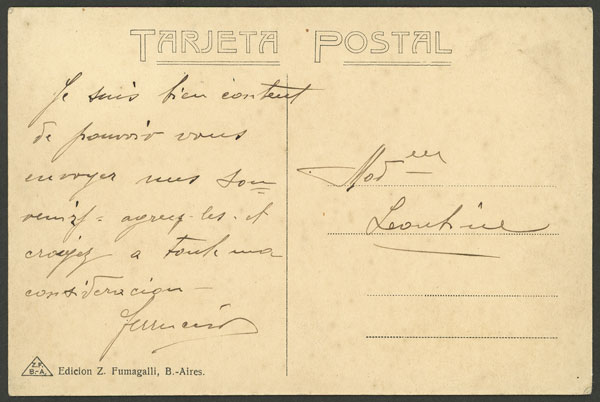 TARJETA POSTAL
Je suis bien content
de pouvoir vous
envoyer mes sou=
venirs = agreez-les-et
croyez a toute ma
consideracion -
Mad me
Leontine
Z.F.
B.-A.
Edicion Z. Fumagalli, B.-Aires.